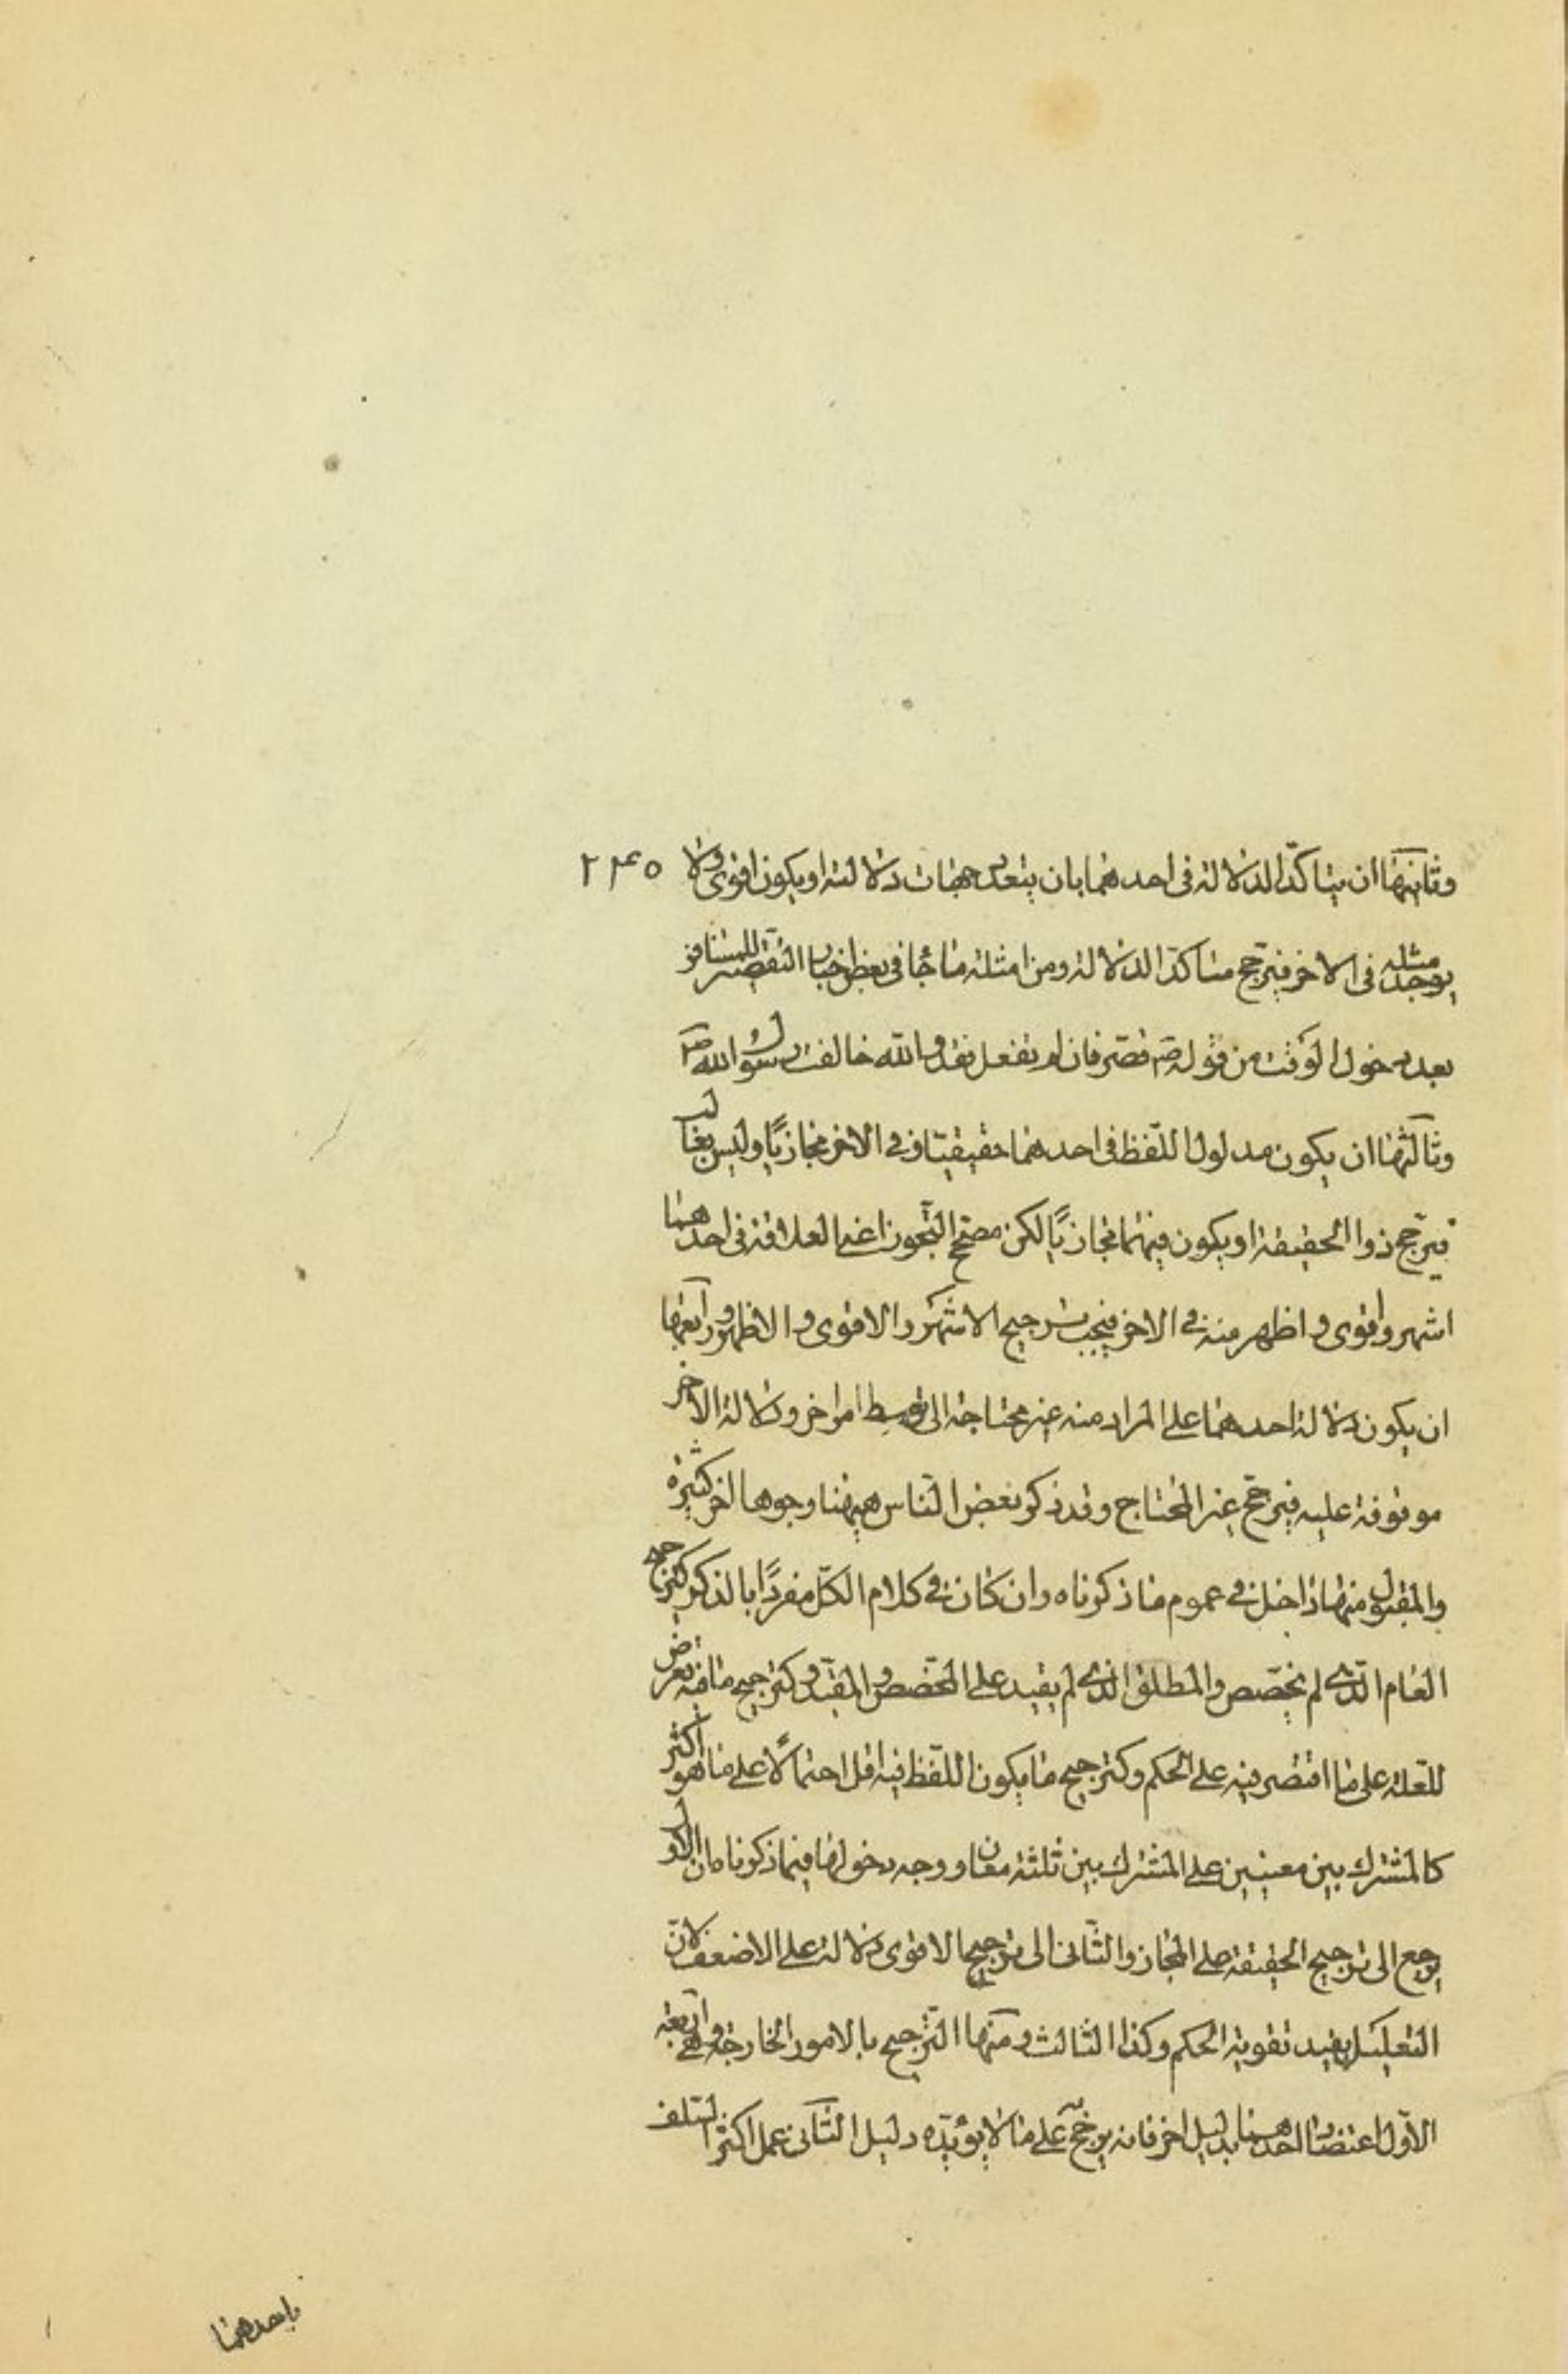 وثانيها ان يتاكد الدلالة فى احدهما بان يتعدد جهات دلالته او يكون اقوى ولا ٢٤٥
يوجد مثله فى الاخر فيرجح متاكد الدلالة ومن امثلته ما جاء فى بعض اخبار التقصير للمسافر
بعد دخول الوقت من قوله ع قصر فان لم تفعل فقد والله خالفت رسول الله ص
وثالثها ان يكون مدلول اللفظ فى احدهما حقيقيا و فى الاخر مجازيا وليس بغالب
فيرجح ذوا الحقيقة او يكون فيهما مجازيا لكن مصحح التجوز اعنى العلاقة فى احدهما
اشهر واقوى و اظهر منه فى الاخر فيجب ترجيح الاشهر والاقوى و الاظهر ورابعها
ان يكون دلالة احدهما على المراد منه غير محتاجة الى توسط امر اخر ودلالة الاخر
موقوفة عليه فيرجح غير المحتاج وقد ذكر بعض الناس هيهنا وجوها اخر كثيرة
والمقبول منها داخل فى عموم ما ذكرناه وان كان فى كلام الكل مفردا بالذكر كترجيح
العام الذى لم يخصص والمطلق الذى لم يقيد على المخصص والمقيد وكترجيح ما فيه تعرض
للعلة على ما اقتصر فيه على الحكم وكترجيح ما يكون اللفظ فيه اقل احتمالا على ما هو اكثر
كالمشترك بين معنيين على المشترك بين ثلثة معان و وجه دخولها فيما ذكرناه ان الاول
يرجع الى ترجيح الحقيقة على المجاز والثانى الى ترجيح الاقوى دلالة على الاضعف لان
التعليل يفيد تقوية الحكم وكذا الثالث ومنها الترجيح بالامور الخارجة وهى اربعة
الاول اعتضاد احدهما بدليل اخر فانه يرجح على ما لا يؤيده دليل الثانى عمل اكثر السلف
باحدهما